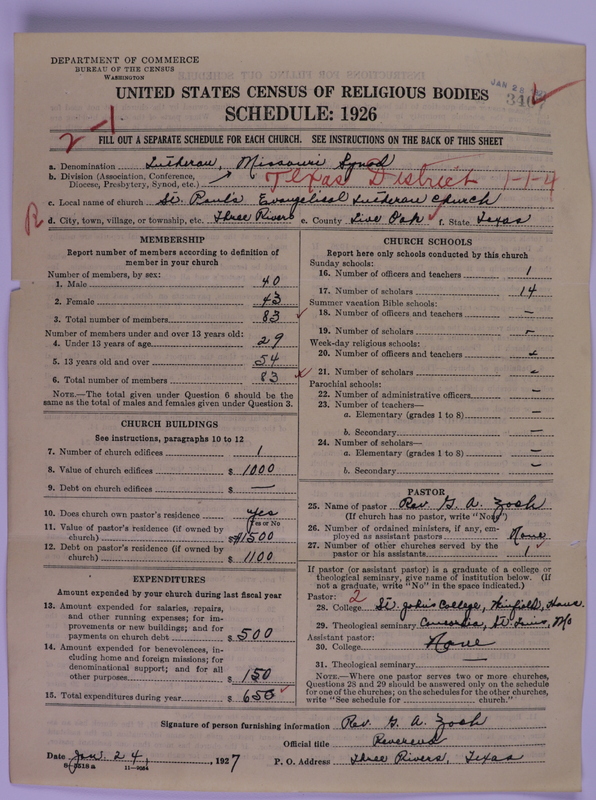 DEPARTMENT OF COMMERCE
BUREAU OF THE CENSUS
WASHINGTON
JAN 28 1927
UNITED STATES CENSUS OF RELIGIOUS BODIES
SCHEDULE: 1926
2-1
FILL OUT A SEPARATE SCHEDULE FOR EACH CHURCH. SEE INSTRUCTIONS ON THE BACK OF THIS SHEET
a. Denomination Lutheran, Missouri Synod
b. Division (Association, Conference, Diocese, Presbytery, Synod, etc.) Texas District 1-1-4
c. Local name of church St. Paul's Evangelical Lutheran Church
R d. City, town, village, or township, etc. Three Rivers e. County Live Oak f. State Texas
MEMBERSHIP
Report number of members according to definition of
member in your church
Number of members, by sex:
1. Male 40
2. Female 43
3. Total number of members 83
Number of members under and over 13 years old:
4. Under 13 years of age 29
5. 13 years old and over 54
6. Total number of members 83
NOTE.—The total given under Question 6 should be the
same as the total of males and females given under Question 3.
CHURCH BUILDINGS
See instructions, paragraphs 10 to 12
7. Number of church edifices 1
8. Value of church edifices $ 1000
9. Debt on church edifices $ —
10. Does church own pastor's residence yes
Yes or No
11. Value of pastor's residence (if owned by
church) $ $1500
12. Debt on pastor's residence (if owned by
church) $ 1100
EXPENDITURES
Amount expended by your church during last fiscal year
13. Amount expended for salaries, repairs,
and other running expenses; for im-
provements or new buildings; and for
payments on church debt $ 500
14. Amount expended for benevolences, in-
cluding home and foreign missions; for
denominational support; and for all
other purposes $ 150
15. Total expenditures during year $ 650
CHURCH SCHOOLS
Report here only schools conducted by this church
Sunday schools:
16. Number of officers and teachers 1
17. Number of scholars 14
Summer vacation Bible schools:
18. Number of officers and teachers —
19. Number of scholars —
Week-day religious schools:
20. Number of officers and teachers —
21. Number of scholars —
Parochial schools:
22. Number of administrative officers —
23. Number of teachers—
a. Elementary (grades 1 to 8) —
b. Secondary —
24. Number of scholars—
a. Elementary (grades 1 to 8) —
b. Secondary —
PASTOR
25. Name of pastor Rev. G. A. Zoch
(If church has no pastor, write "None")
26. Number of ordained ministers, if any, em-
ployed as assistant pastors None
27. Number of other churches served by the
pastor or his assistants 1
If pastor (or assistant pastor) is a graduate of a college or
theological seminary, give name of institution below. (If
not a graduate, write "No" in the space indicated.)
Pastor: 2
28. College St. John's College, Winfield, Kans.
29. Theological seminary Concordia, St. Louis, Mo
Assistant pastor:
30. College None
31. Theological seminary —
NOTE.—Where one pastor serves two or more churches,
Questions 28 and 29 should be answered only on the schedule
for one of the churches; on the schedules for the other churches,
write "See schedule for church."
Signature of person furnishing information Rev. G. A. Zoch
Official title Reverend
Date Jan. 24, 1927 P. O. Address Three Rivers, Texas